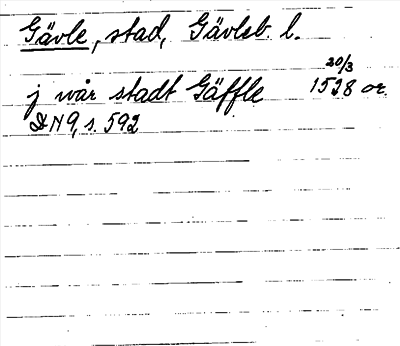 Gävle, stad, Gävleb. l.
20/3
j wår stadt Gäffle 1528 or.
DN 9, s. 592